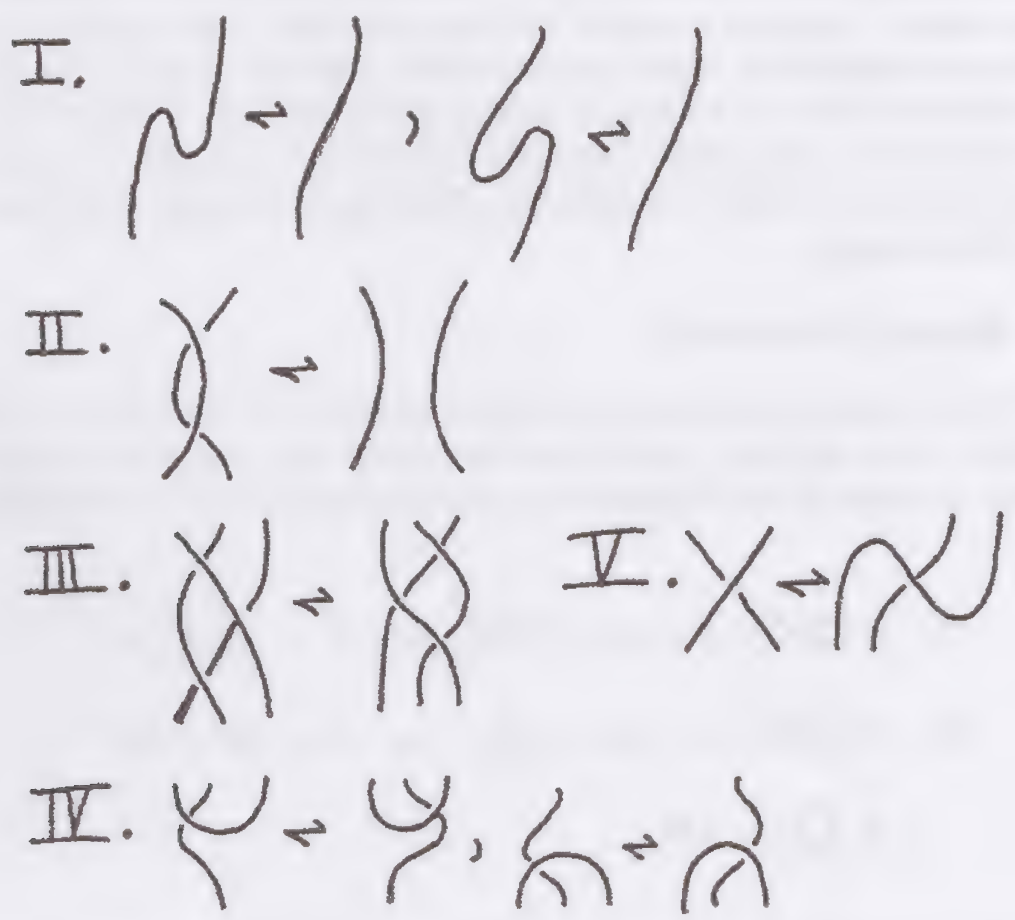 I.
II.
III. V.
IV.